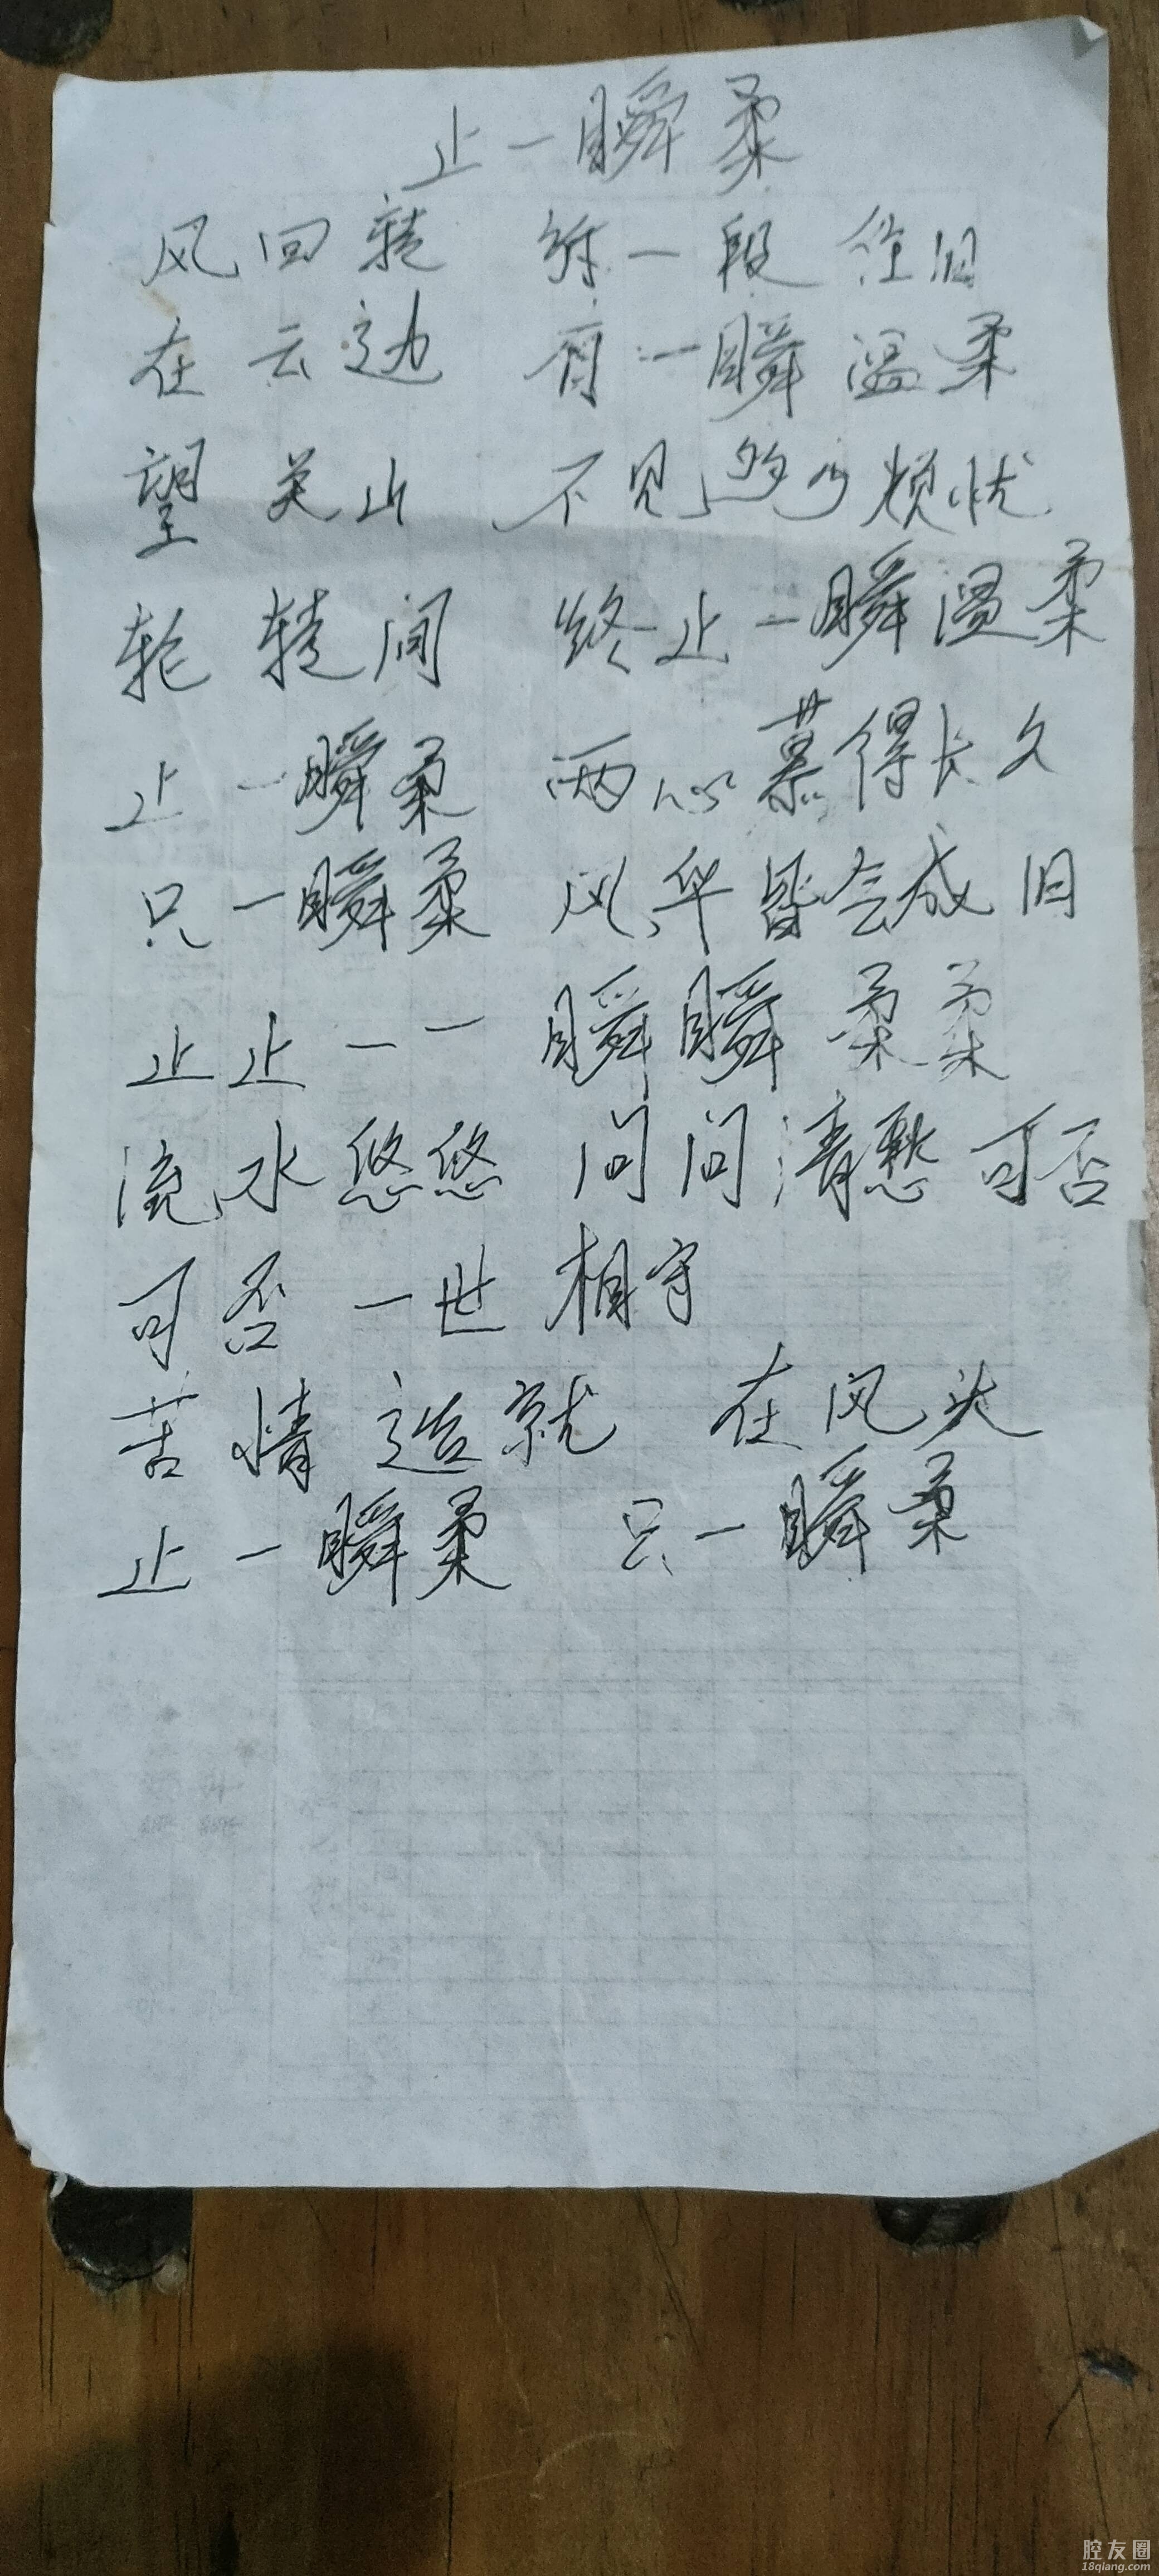 止一瞬柔
风回转 一段 旧
在云边 有一瞬温柔
望关山 不见 烦忧
轮转间 终止一瞬温柔
止一瞬柔 两心慕得长久
只一瞬柔 风华皆会成旧
止止一一 瞬瞬柔柔
流水悠悠 问问清愁可否
可否一世相守
苦情造就 在风头
止一瞬柔 只一瞬柔
腔友圈
18qiang.com